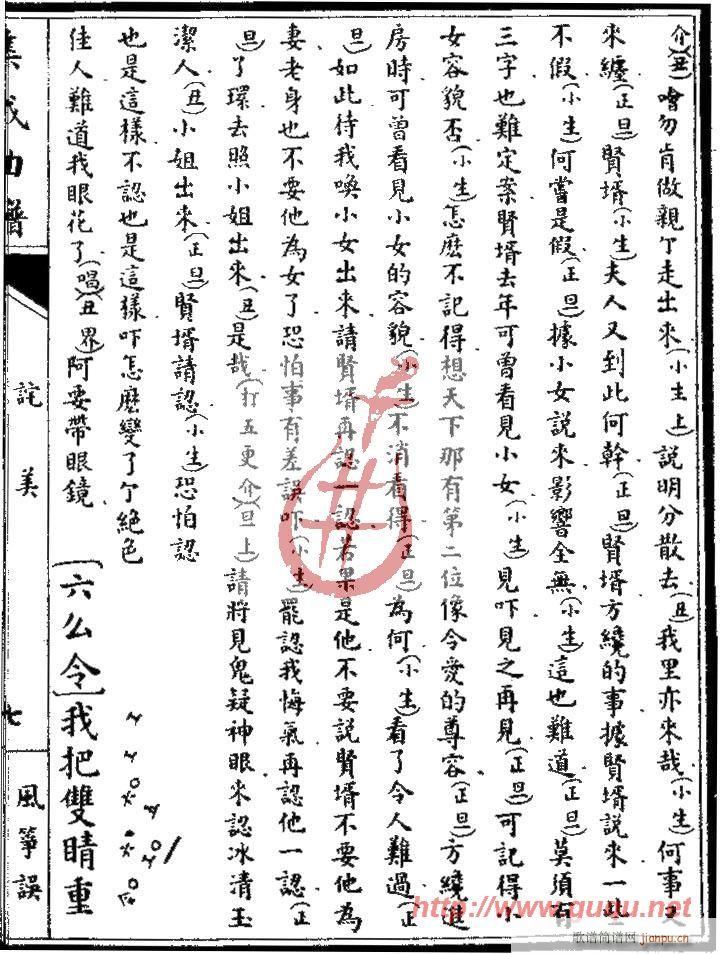 介)(丑)噲勿肯做親亇走出來(小生上)說明分散去(丑)我里亦來哉(小生)何事又
來纏(正旦)賢壻(小生)夫人又到此何幹(正旦)賢壻方纔的事據賢壻說來一些
不假(小生)何嘗是假(正旦)據小女說來影響全無(小生)這也難道(正旦)莫須有
三字也難定案賢壻去年可曾看見小女(小生)見吓見之再見(正旦)可記得小
女容貌否(小生)怎麼不記得想天下那有第二位像令愛的尊容(正旦)方纔進
房時可曾看見小女的容貌(小生)不消看得(正旦)為何(小生)看了令人難過(正
旦)如此待我喚小女出來請賢壻再認一認若果是他不要說賢壻不要他為
妻老身也不要他為女了恐怕事有差誤吓(小生)罷認我悔氣再認他一認(正
旦)了環去照小姐出來(丑)是哉(打五更介)(旦上)請將見鬼疑神眼來認冰清玉
潔人(丑)小姐出來(正旦)賢壻請認(小生)恐怕認
也是這樣不認也是這樣吓怎麼變了亇絕色
佳人難道我眼花了(唱)(丑界)阿要帶眼鏡
[六么令]我把雙睛重
集成曲譜
詫美
七
風箏誤
http://www.ququ.net
歌谱简谱网
jianpu.cn